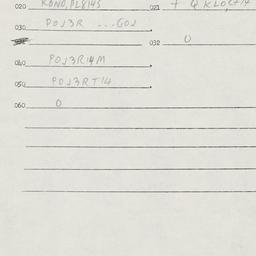 020 KOND, PL8145 021
030 POJ3R ... GOJ
032 0
040 POJ3R14M
050 POJ3RT14
060 0